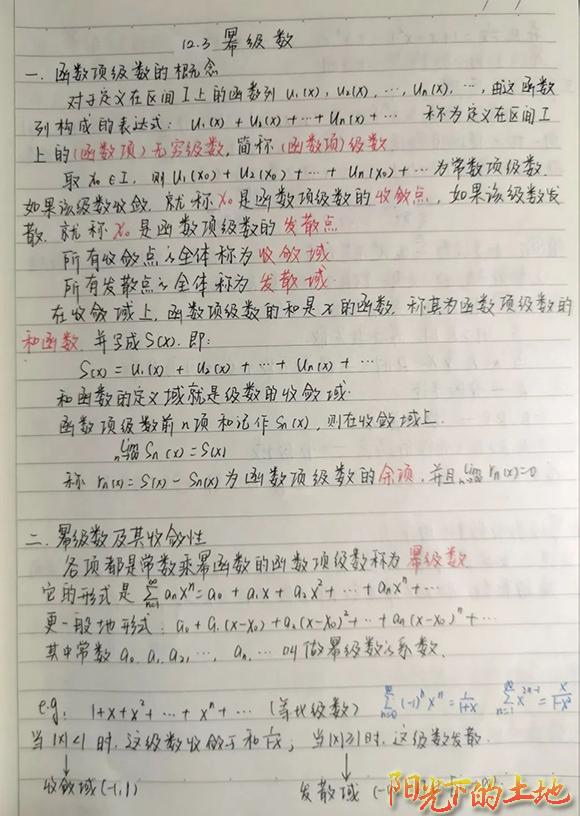 12.3 幂级数
一. 函数项级数的概念
对于定义在区间I上的函数列 u₁(x), u₂(x), ⋯, uₙ(x), ⋯, 由这函数
列构成的表达式: u₁(x) + u₂(x) + ⋯ + uₙ(x) + ⋯ 称为定义在区间I
上的(函数项)无穷级数, 简称(函数项)级数
取 x₀∈I, 则 u₁(x₀) + u₂(x₀) + ⋯ + uₙ(x₀) + ⋯ 为常数项级数.
如果该级数收敛. 就称x₀是函数项级数的收敛点, 如果该级数发
散. 就称x₀是函数项级数的发散点
所有收敛点之全体称为收敛域
所有发散点之全体称为发散域
在收敛域上, 函数项级数的和是x的函数. 称其为函数项级数的
和函数. 并写成S(x). 即:
S(x) = u₁(x) + u₂(x) + ⋯ + uₙ(x) + ⋯
和函数的定义域就是级数的收敛域.
函数项级数前n项和记作Sₙ(x), 则在收敛域上.
lim n→∞ Sₙ(x) = S(x)
称 rₙ(x) = S(x) - Sₙ(x) 为函数项级数的余项, 并且 lim n→∞ rₙ(x)=0
二. 幂级数及其收敛性
各项都是常数乘幂函数的函数项级数称为幂级数
它的形式是 ∑ aₙxⁿ = a₀ + a₁x + a₂x² + ⋯ + aₙxⁿ + ⋯
更一般地形式: a₀ + a₁(x-x₀) + a₂(x-x₀)² + ⋯ + aₙ(x-x₀)ⁿ + ⋯
其中常数 a₀, a₁, a₂, ⋯, aₙ ⋯ 叫做幂级数之系数.
e.g. 1+x+x²+ ⋯ + xⁿ + ⋯ (等比级数) ∑ n=0 ∞ (-1)ⁿxⁿ = 1/(1+x) ∑ n=1 ∞ x²ⁿ⁻¹ = x/(1-x²)
当|x|<1时, 这级数收敛于和 1/(1-x); 当|x|≥1时, 这级数发散.
收敛域(-1,1) 发散域
阳光下的土地